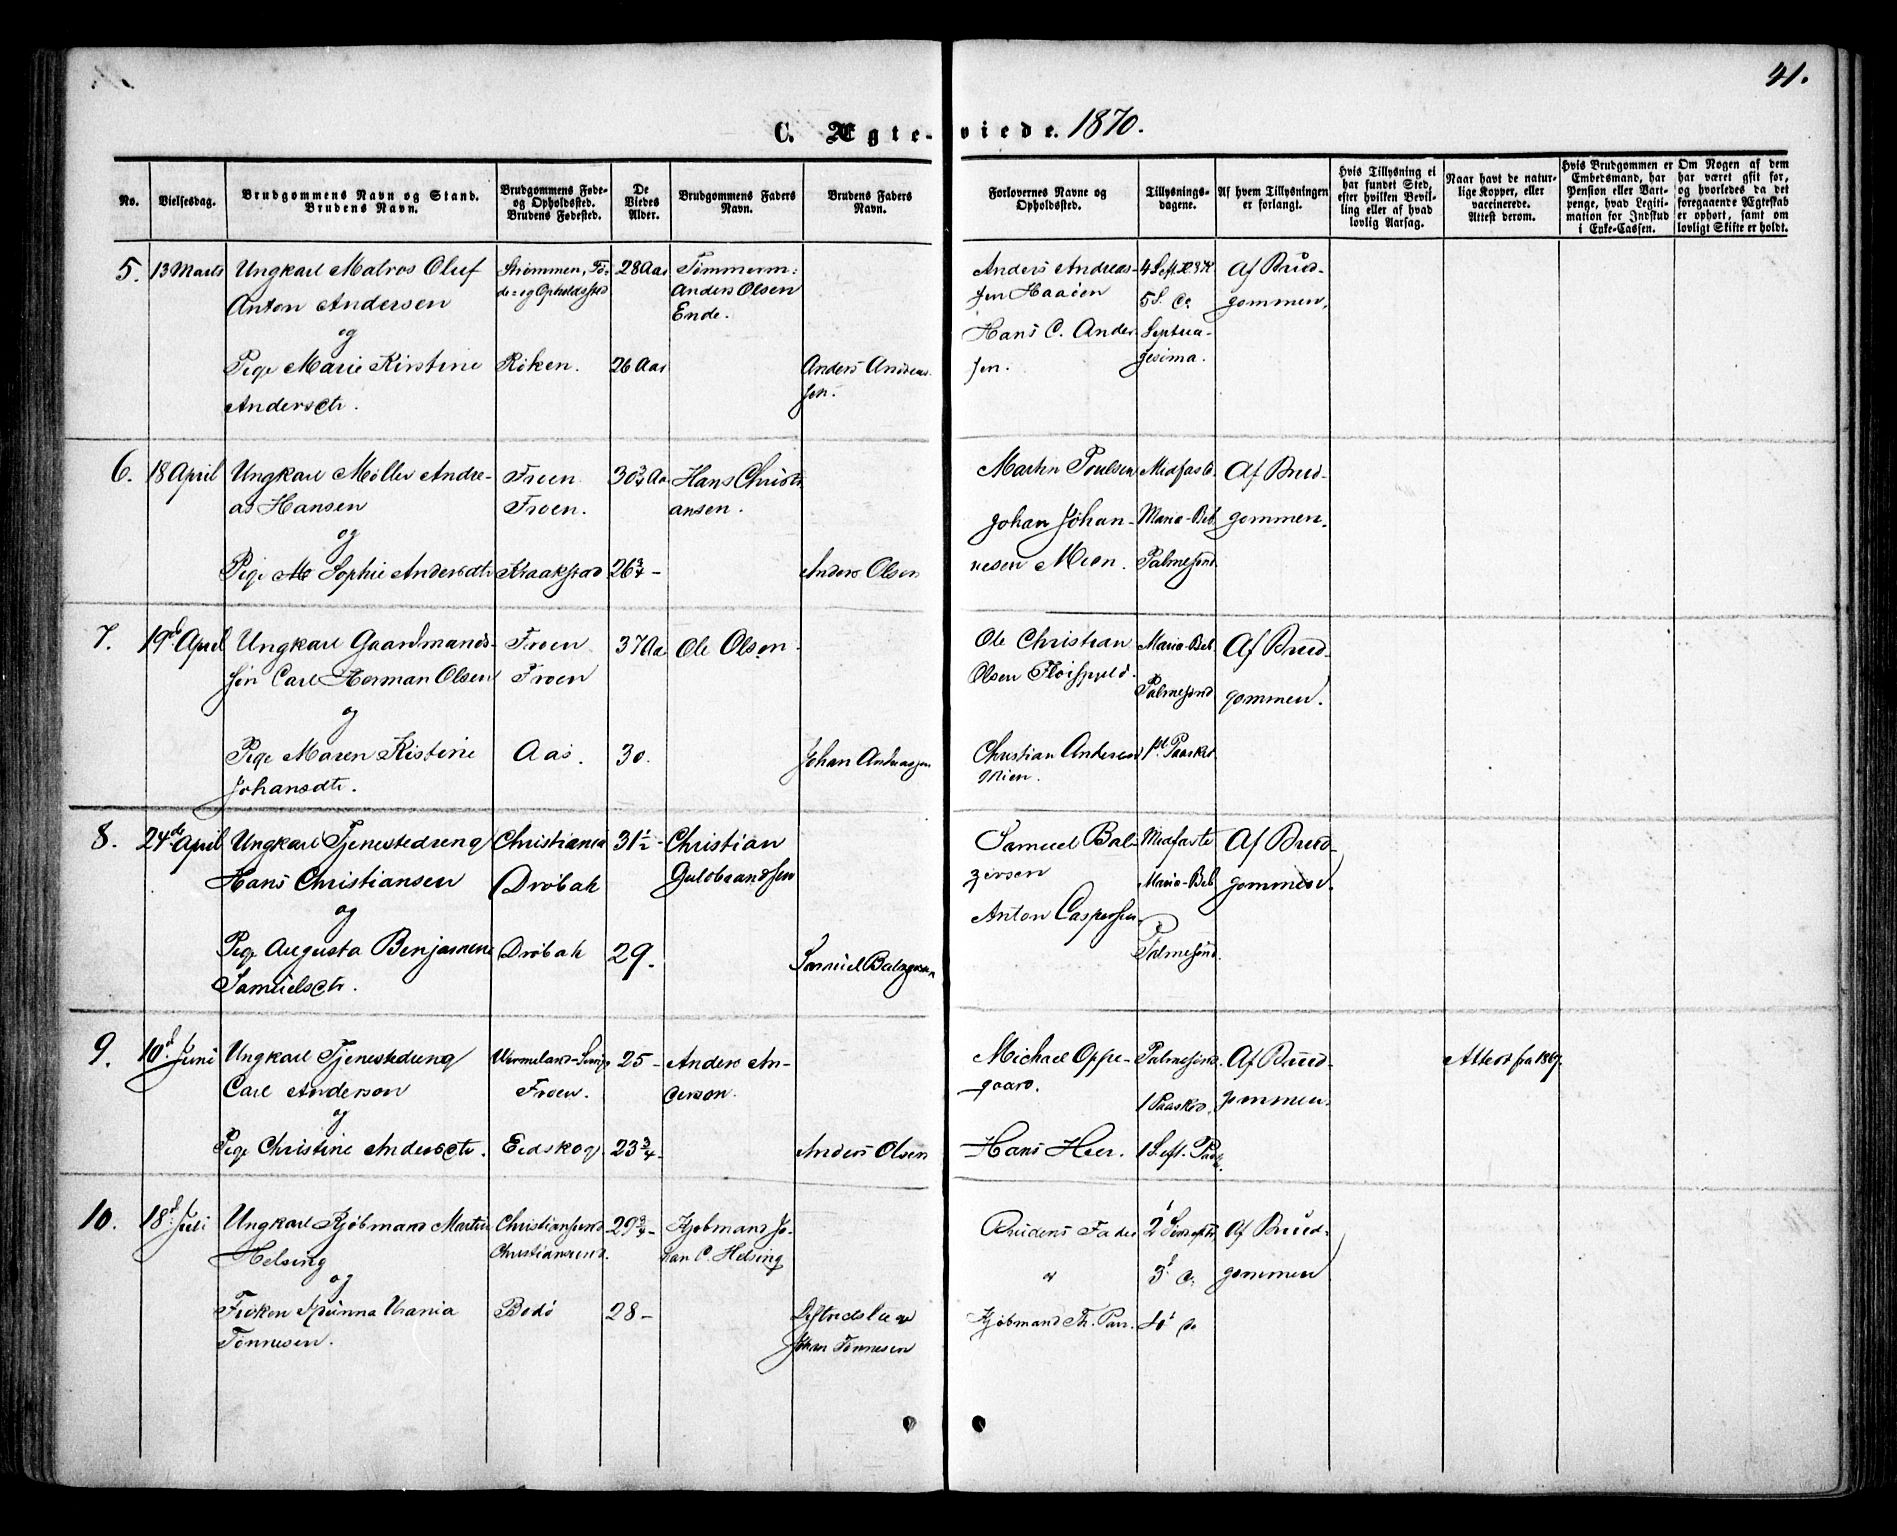 41.
C. Ægte-viede. 1870.
No.
Vielsesdag.
Brudgommens Navn og Stand.
Brudens Navn.
Brudgommens Føde-
og Opholdssted.
Brudens Fødested.
De
Viedes
Alder.
Brudgommens Faders
Navn.
Brudens Faders
Navn.
Forlovernes Navne og
Opholdssted.
Tillysnings-
dagene.
Af hvem Tillysningen
er forlangt.
Hvis Tillysning ei
har fundet Sted,
efter hvilken Bevil-
ling eller af hvad
lovlig Aarsag.
Naar havt de natur-
lige Kopper, eller
vaccinerede.
Attest derom.
Hvis Brudgommen er
Embedsmand, har
Pension eller Vart-
penge, hvad Legiti-
mation for Indskud
i Enke-Cassen.
Om Nogen af dem
har været gift før,
og hvorledes da det
foregaaende Ægteskab
er ophørt, samt om
lovligt Skifte er holdt.
5. 13 Marts Ungkarl Matros Oluf
Anton Andersen
og
Pige Marie Kirstine
Andersdtr.
Strømmen, Fø-
de- og Opholdssted
Røken.
28 Aar
26 Aar
Tømmerm:
Anders Olsen
Ende.
Anders Andreas-
sen.
Anders Andreas-
sen Haaøen
Hans C. Ander-
sen.
5 S. do
Septua-
gesima.
Af Brud-
gommen.
6. 18 April Ungkarl Møller Andre-
as Hansen
og
Pige M Sophie Andersdtr
Froen
Froen.
Kraakstad
30 3/4 Aar
26 3/4 -
Hans Christi-
ansen.
Anders Olsen
Martin Poulsen
Johan Johan-
nesen Moen.
Midfaste
Maria-Beb
Palmesønd
Af Brud-
gommen.
7. 19d April Ungkarl Gaardmands-
søn Carl Herman Olsen
og
Pige Maren Kistine
Johansdtr.
Froen
Froen
Aas.
37 Aar
30.
Ole Olsen
Johan Andreassen
Ole Christian
Olsen
Christian Andersen
Maria-Beb.
Palmesønd
1st Paasked
Af Brud-
gommen.
8. 24de April Ungkarl Tjenestedreng
Hans Christiansen
og
Pige Augusta Benjamine
Samuelsdtr.
Christiania
Drøbak
Drøbak
31 1/2 -
29.
Christian
Guldbrandsen
Samuel Balzersen
Samuel Bal-
zersen
Anton Caspersen
Midfaste
Maria-Beb
Palmesønd.
Af Brud-
gommen.
9. 10d Juni Ungkarl Tjenestedreng
Carl Anderson
og
Pige Christine Andersdtr.
Vermeland-Sverige
Froen.
Eidskog
25 -
23 3/4 -
Anders An-
derson.
Anders Olsen
Michael Oppe-
gaard.
Hans Heer.
Palmesønd.
1 Paasked.
1 S. eft. Paask.
Af Brud-
gommen.
Attest fra 1867.
10. 18d Juli Ungkarl Kjøbmand Martin
Helsing
og
Frøken Urania
Tønnesen.
Christiansund
Christiansund.
Bodø
29 3/4 -
28 -
Kjøbmand Jo-
han C. Helsing
Distriedslæge
Johan Tønnesen
Brudens Fader
Kjøbmand Th. Parr.
3d do
4d do
Af Brud-
gommen